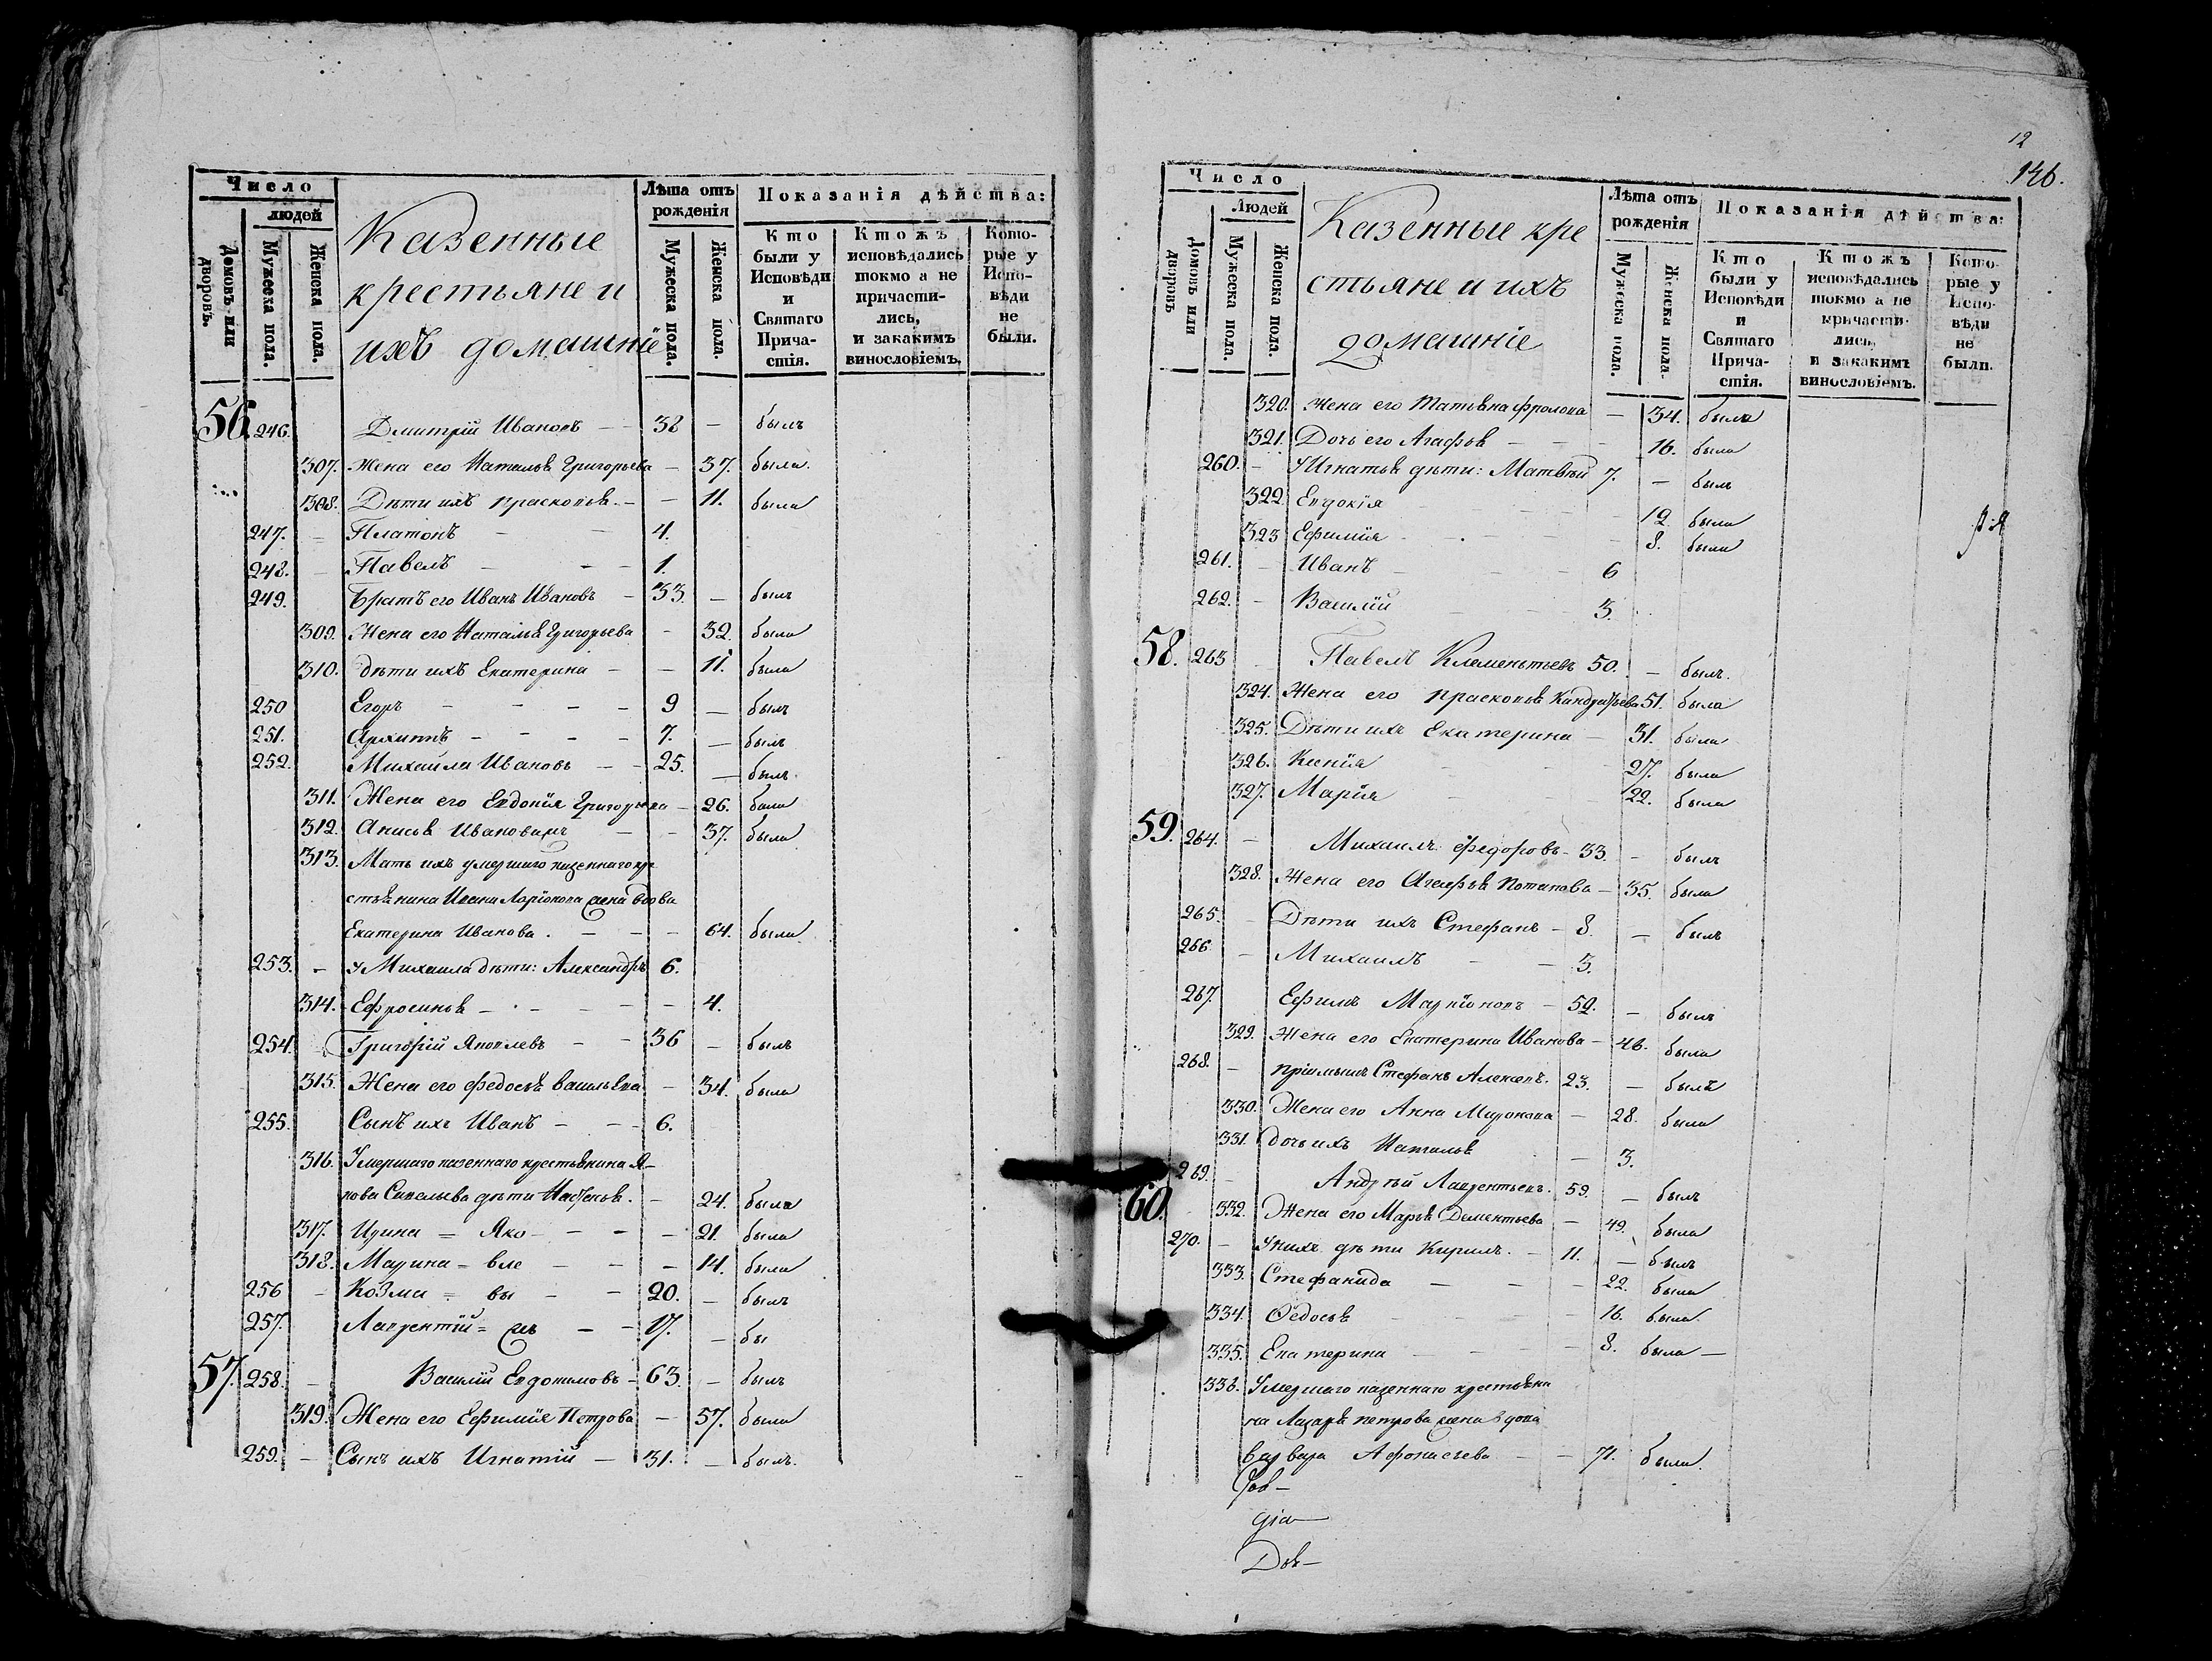 Число
людей
Домовъ или дворовъ.
Мужеска пола.
Женска пола.
Казенные
крестьяне и
ихъ домашніе
Лѣта отъ рожденія
Мужеска пола.
Женска пола.
Показанія дѣйства:
Кто были у Исповѣди и Святаго Прича-стія.
Ктожъ исповѣдались токмо а не причасти-лись, и закакимъ винословіемъ.
Кото-рые у Испо-вѣди не были.
56. 246. Дмитрій Ивановъ — 38 — былъ
307. Жена его Наталья Григорьева — 37. была.
308. Дѣти ихъ Прасковья — — 11. была
247. — Платонъ — — 4.
248. — Павелъ — — — 1.
249. Братъ его Иванъ Ивановъ — 33 — былъ
309. Жена его Наталья Григорьева — 32. была
310. дѣти ихъ Екатерина — — 11. была
250 Егоръ — — — — 9 — былъ
251. Архипъ — — — — 7. — былъ
252. Михайла Ивановъ — — 25. — былъ.
311. Жена его Евдокія Григорьева — 26. была
312. Анисья Ивановыхъ — — 37. была
313. Мать ихъ умершаго казеннаго кре
стьянина Ивана Ларіонова жена вдова
Екатерина Иванова. — — — 64. была
253. — у Михаила дѣти: Александръ 6.
314. Ефросинья — — — — 4.
254. Григорій Яковлевъ — — 36 — былъ
315. Жена его Федосья Васильева — 34. была
255. Сынъ ихъ Иванъ — — — 6.
316. Умершаго казеннаго крестьянина Я—
кова Савельева дѣти — 24. была
317. Ирина = Яко — — — 21. была
318. Марина = вле — — — 14. была
256 — Козма = вы — — 20. — былъ
257. Лаврентій = — — 17. — бы
57. 258. — Василій Евдокимовъ — 63. — былъ
319. Жена его Ефимія Петрова — 57. была
259. — Сынъ ихъ Игнатій — 31. — былъ.
12
146.
Число
Людей
Домовъ или дворовъ
Мужеска пола.
Женска пола.
Казенные кре
стьяне и ихъ
домашніе
Лѣта отъ рожденія
Мужеска пола.
Женска пола.
Показанія дѣйства:
Кто были у Исповѣди и Святаго Прича-стія.
Ктожъ исповѣдались токмо а не причасти-лись, и закакимъ винословіемъ.
Кото-рые у Испо-вѣди не были.
320. Жена его Татьяна Фролова — 34. была
321. Дочь его Агафья — — — 16. была
260. — У Игнатья дѣти: Матвѣй 7. — былъ
322. Евдокія — — — 12. была
323 Ефимія — — — 8. была
261. — Иванъ — — — 6
262. — Василій — — 3.
58. 263 — Павелъ Клементьевъ 50. — былъ.
324. Жена его Прасковья Кандратьева 51. была
325. Дѣти ихъ Екатерина — 31. была
326. Ксенія — — 27. была
327. Марія — — 22. была
59. 264. — Михаилъ Федоровъ — 33. — былъ
328. Жена его Агафья Потапова — 35. была
265. — Дѣти ихъ Стефанъ — 8. — былъ
266 — Михаилъ — — 3.
267. Ефимъ Маркіоновъ — 59. — былъ
329. Жена его Екатерина Иванова — 46. была
268. — пріимышъ Стефанъ Алексѣевъ. 23. — былъ
330. Жена его Анна Миронова — 28. была
331. дочь ихъ Наталья — 3.
60. 269. — Андрѣй Лаврентьевъ. 59. — былъ
332. Жена его Марья Дементьева — 49. была
270. — Уних дѣти Кирилъ. — 11. — былъ
333. Стефанида — — — 22. была
334. Ѳедосья — — — 16. была
335. Екатерина — — — 8. была —
336. Умершаго казеннаго крестьяни
на Лазаря петрова жена вдова
Варвара Афонасьева — — 71. была.